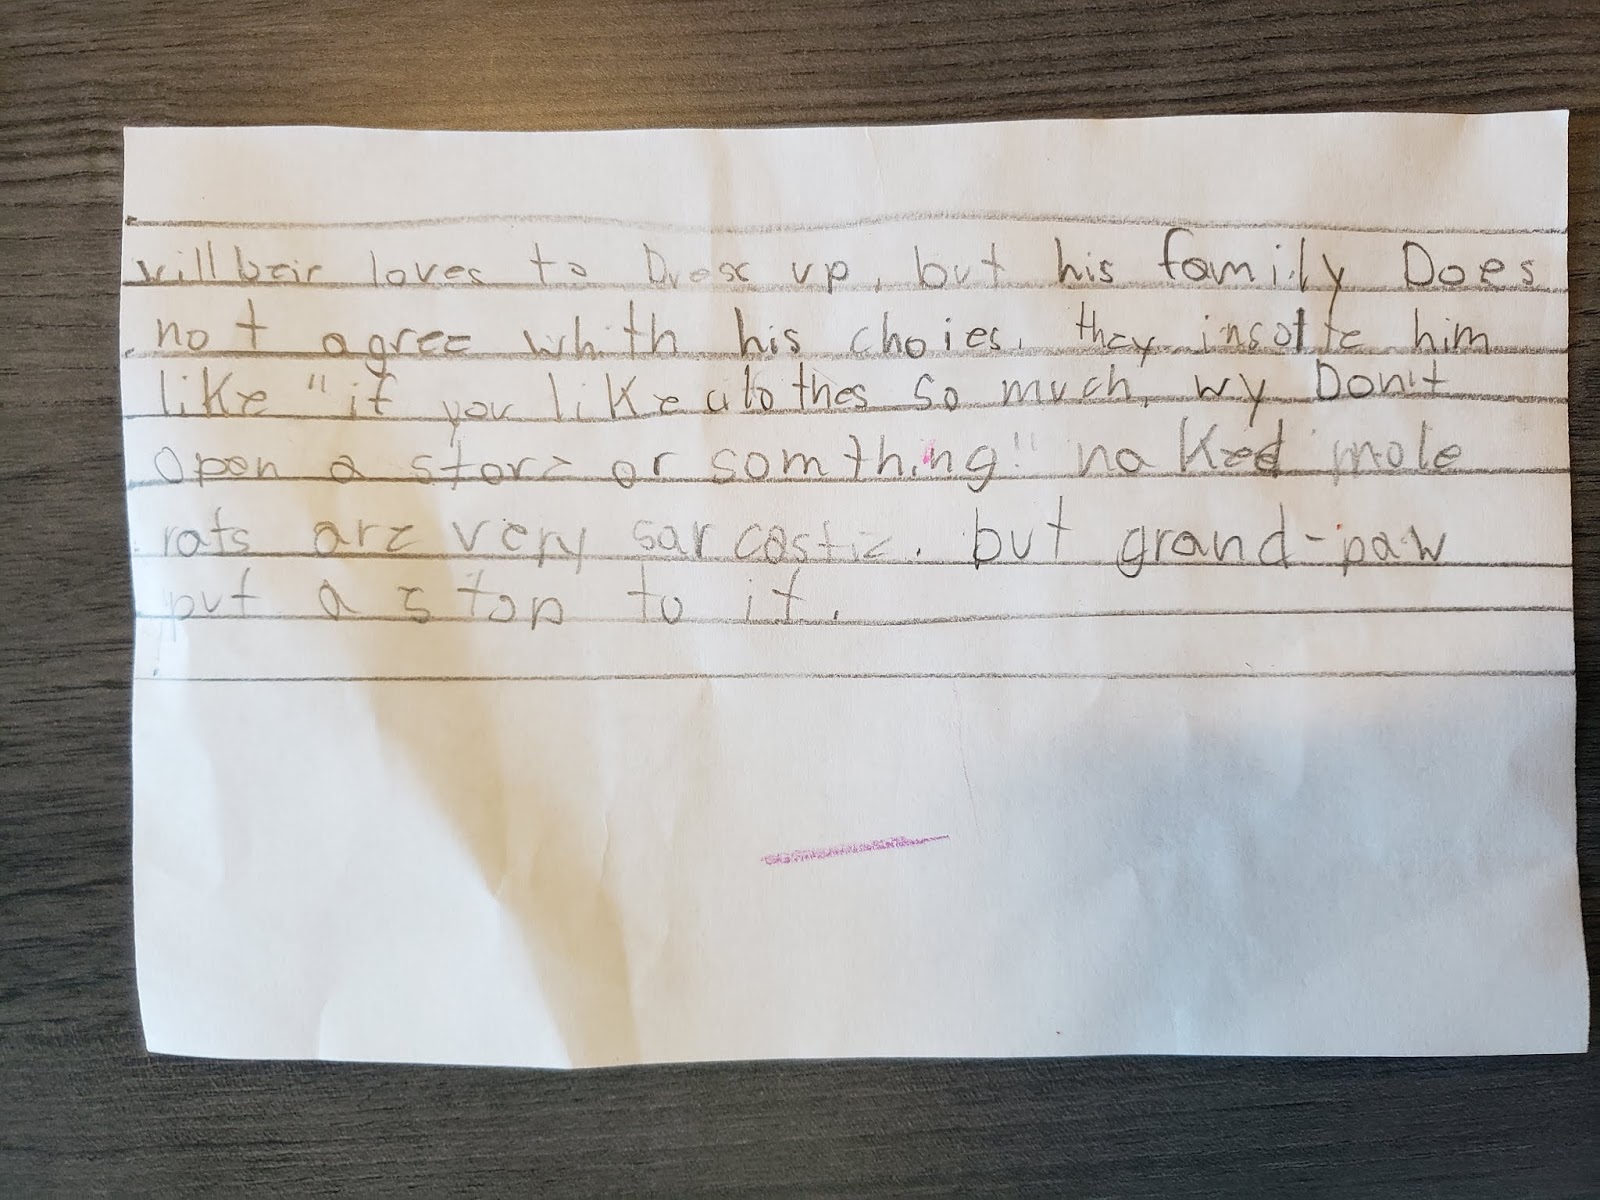 willbeir loves to Dress up, but his family Does
not agree whith his choies. they insolte him
like "if you like clothes so much, wy Don't
Open a store or somthing" naked mole
rats are very sarcastic. but grand-paw
put a stop to it.